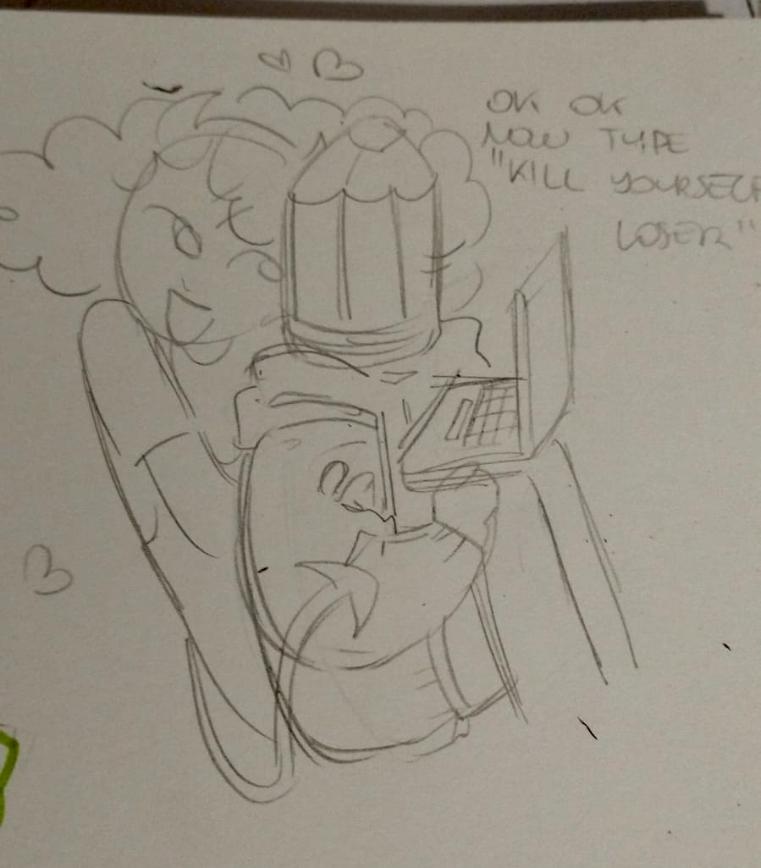 OK OK
NOW TYPE
"KILL YOURSELF
LOSER"